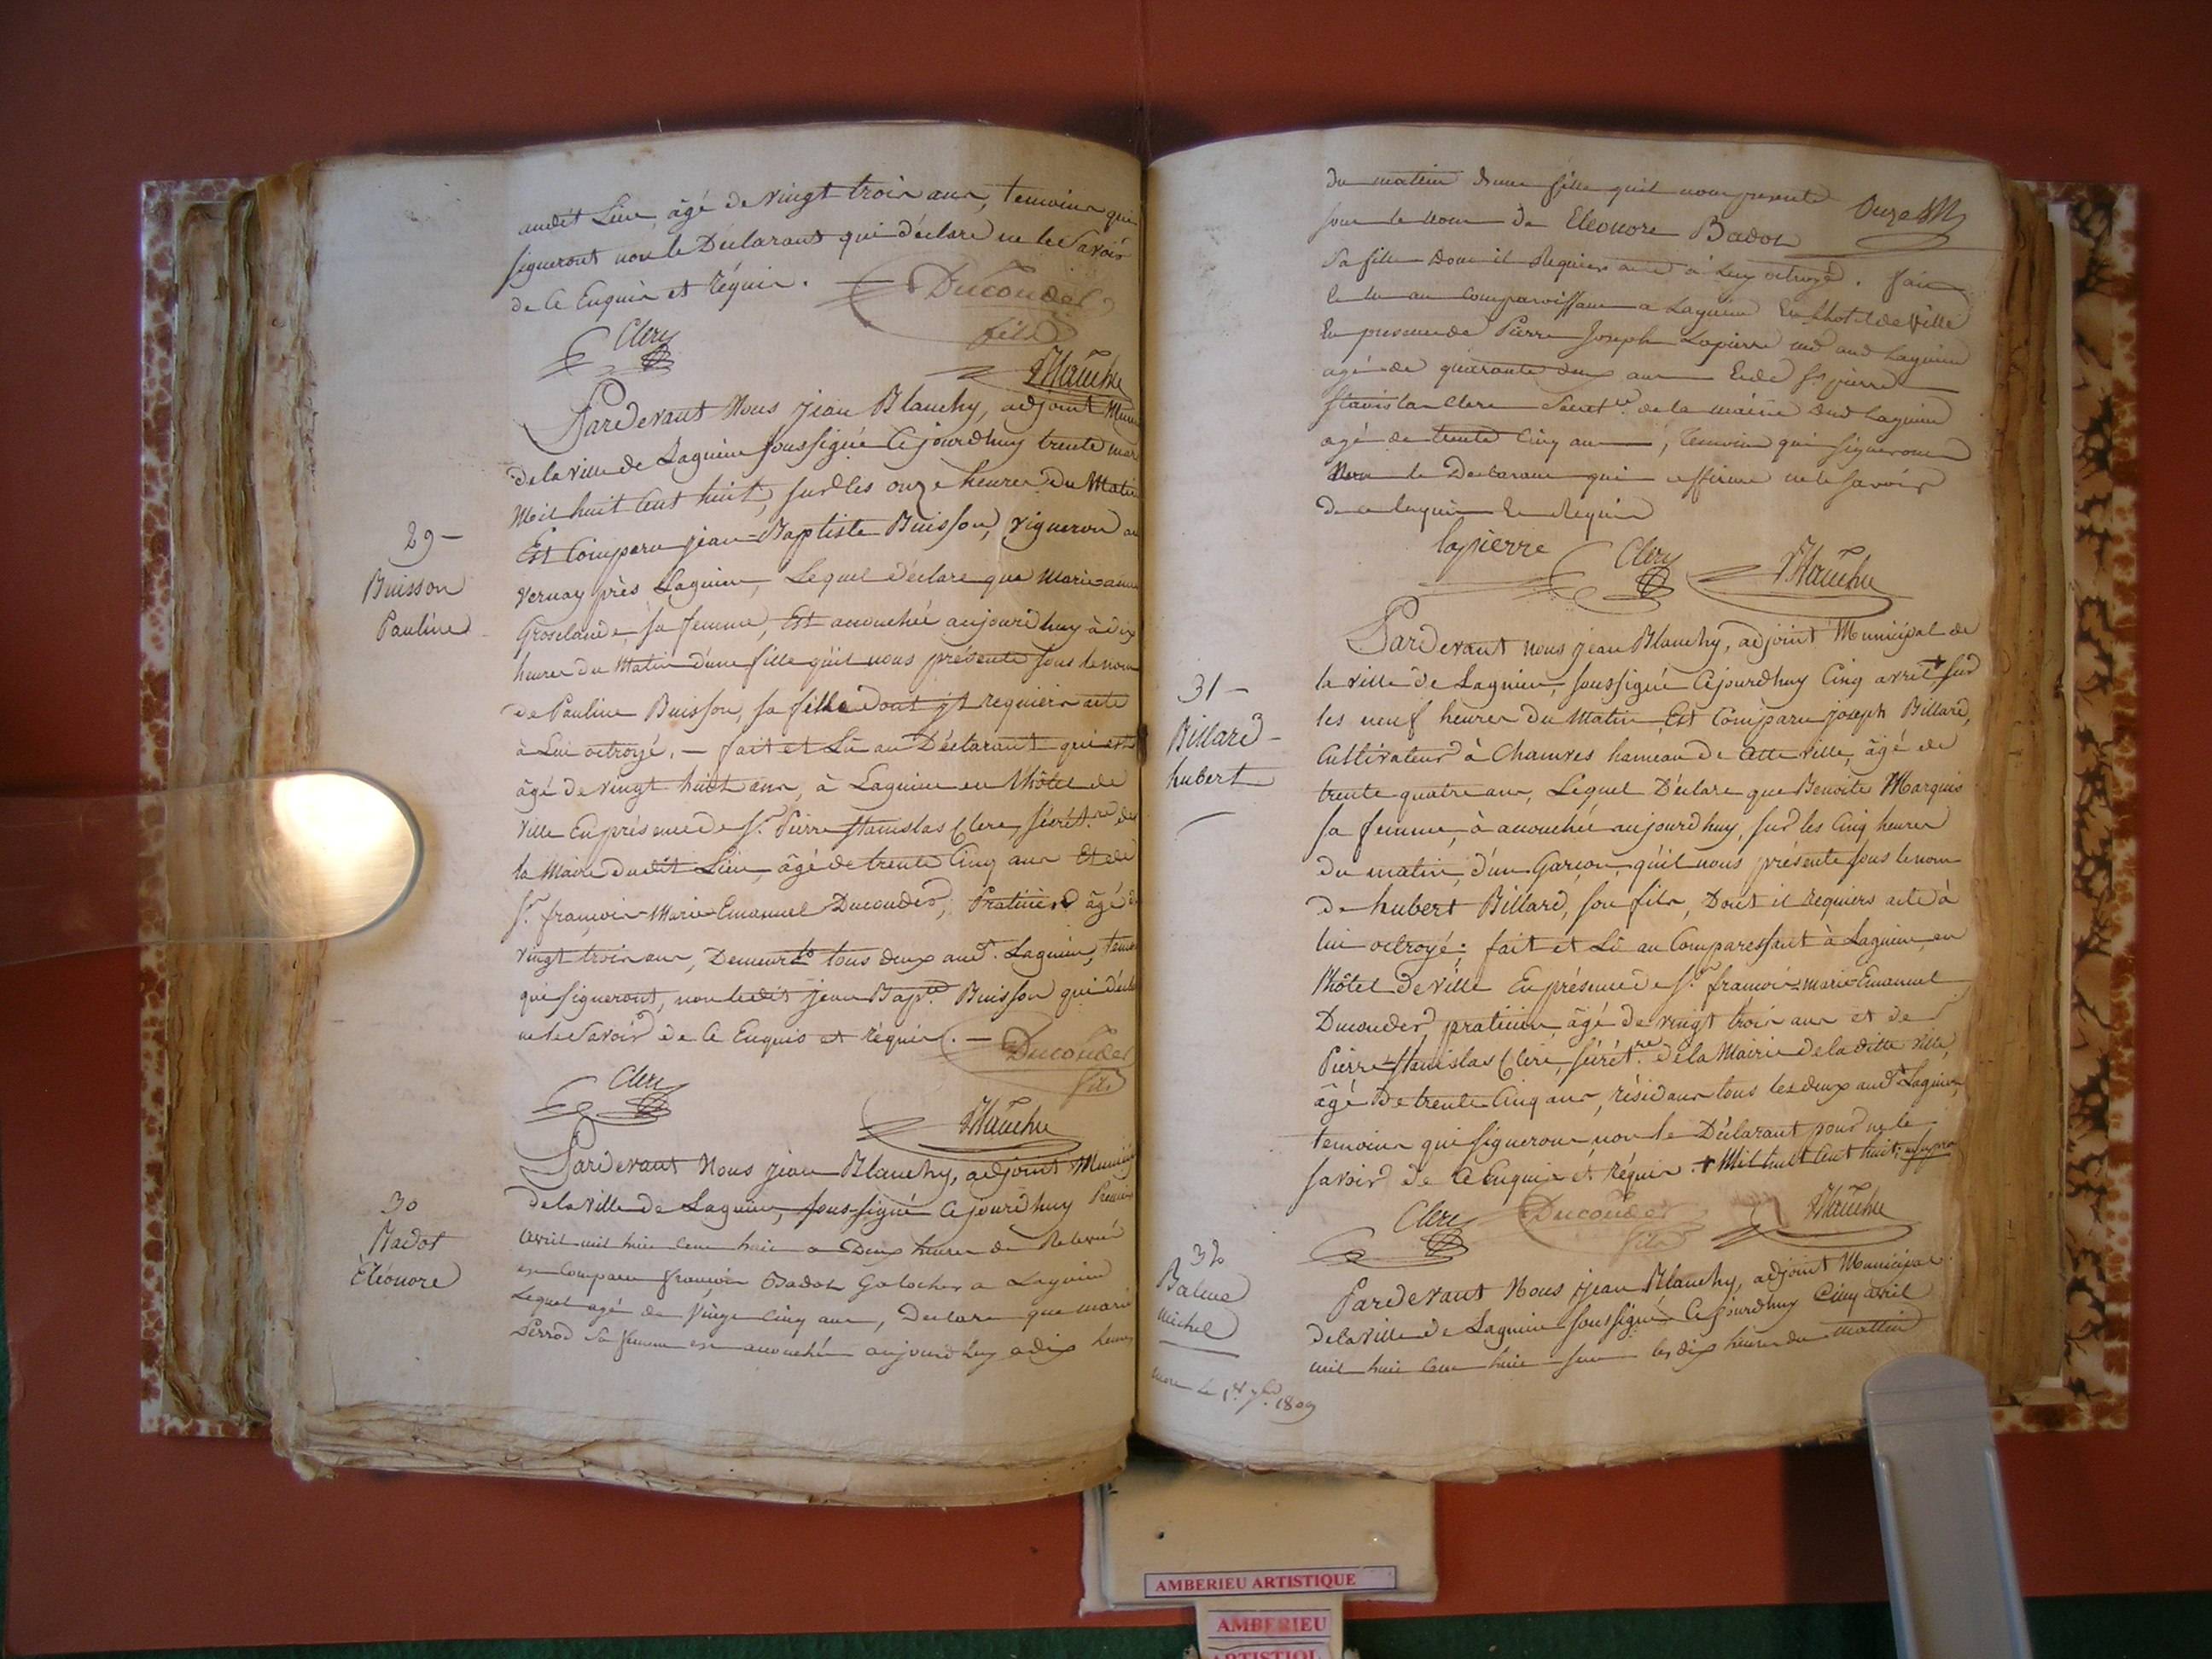 audit Lieu, âgé de vingt trois ans, temoins qui
signeront non le Déclarant qui déclare ne le Savoir
de Ce Enquis et réquis. Ducouder
fils
Clerc
Blanchy
Pardevant Nous jean Blanchy, adjoint Muni
de la ville de Lagnieu soussigné Cejourdhuy trente mars
Mil huit Cent huit, sur les onze heures du Matin
Est Comparu jean-Baptiste Buisson, vigneron au
29 -
Buisson
Pauline
vernay près Lagnieu, Lequel déclare que Marie anne
Groselande, sa femme, Est accouchée aujourdhuy à dix
heures du Matin d'une fille qu'il nous présente sous le nom
de Pauline Buisson, sa fille dont il requiers acte
à Lui octroyé. - fait et Lû au Déclarant qui est
âgé de vingt huit ans, à Lagnieu en l'hôtel de
ville En présence de Sr. Pierre Stanislas Clerc, sécrét.re de
la Mairie dudit Lieu, âgé de trente Cinq ans Et de
Sr. françois-Marie-Emanuel Ducouder, Praticien âgé de
vingt trois ans, Demeurts. tous deux aud. Lagnieu, temoi
qui signeront, non ledit jean Bapte. Buisson qui décla
ne le Savoir de Ce Enquis et réquis. - Ducouder
fils
Clerc
Blanchy
Pardevant Nous jean Blanchy, adjoint Municip
30
Badot
Eléonore
de la ville de Lagnieu, soussigné Cejourdhuy Premier
avril mil huit cent huit a Deux heures de Relevée
est comparu françois Badot Galocher a Lagnieu
Lequel agé de Vingt Cinq ans, Declare que marie
Perrod sa femme est accouchée aujourdhuy a dix heures
du matin d'une fille quil nous presente
sous le nom de Eleonore Badot
Sa fille Dont il Requiers acte à Luy octroyé. fait
et lu au comparoissant a Lagnieu En Lhotel de Ville
En presence de Pierre Joseph Lapierre md aud Lagnieu
agé de quarante deux ans Et de Sr pierre
Stanislas Clerc Secretre. de la mairie dud Lagnieu
agé de trente Cinq ans, Temoins qui signeront
Non le Declarant qui affirme ne le savoir
de ce enquis et Requis
lapierre Clerc Blanchy
Pardevant nous jean Blanchy, adjoint Municipal de
31 -
Billard
hubert
la ville de Lagnieu, soussigné Cejourdhuy Cinq avril + sur
les neuf heures du Matin, Est Comparu joseph Billard,
Cultivateur à Chamves hameau de Cette ville, âgé de
trente quatre ans, Lequel Déclare que Benoite Marquis
sa femme, à accouchée aujourdhuy, sur les Cinq heures
du matin, d'un Garçon, qu'il nous présente sous le nom
de hubert Billard, son fils, Dont il Requiers acte à
lui octroyé; fait et Lû au Comparessant à Lagnieu en
l'hôtel de ville En présence de Sr. françois-marie-Emanuel
Ducouder praticien âgé de vingt trois ans et de
Pierre-Stanislas Clerc, sécrét.re de la Mairie de laditte ville,
âgé De trente Cinq ans, résidans tous les deux audt. Lagnieu,
temoins qui signeront non le Déclarant pour ne le
savoir de Ce Enquis et Réquis. + Mil huit Cent huit;
Clerc Ducouder Blanchy
fils
32
Balme
Michel
mort le 1er 7bre 1809
Pardevant Nous jean Blanchy, adjoint Municipal
de la ville de Lagnieu soussigné Cejourdhuy Cinq avril
mil huit Cent huit sur les dix heures du mattin
AMBERIEU ARTISTIQUE
AMBERIEU
ARTISTIQU